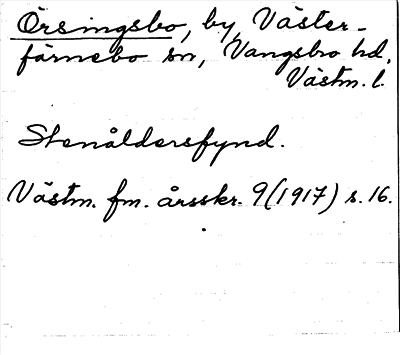 Örsingsbo, by, Väster-
färnebo sn, Vangsbro hd,
Västm. l.
Stenåldersfynd.
Västm. fm. årsskr. 9 (1917) s. 16.